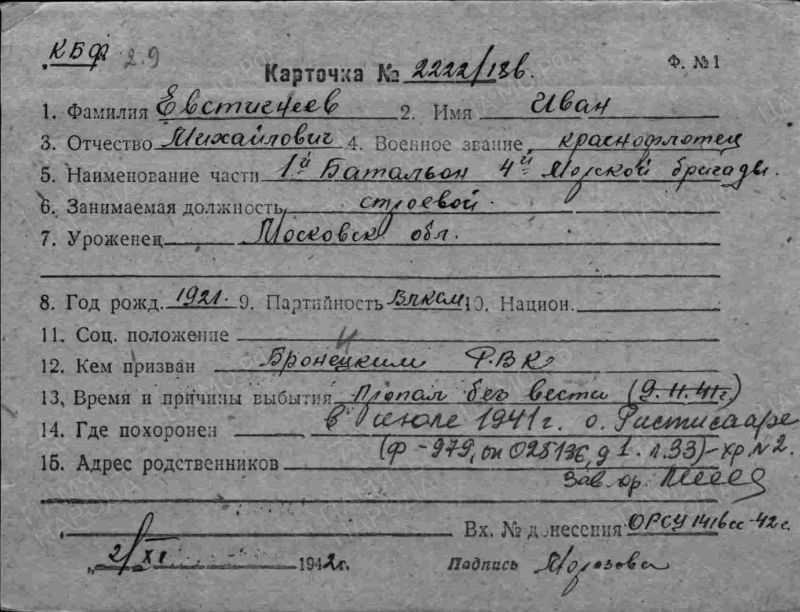 КБФ 2.9
Карточка № 2222/18в. Ф. №1
1. Фамилия Евстигнеев 2. Имя Иван
3. Отчество Михайлович 4. Военное звание краснофлотец
5. Наименование части 1й Батальон 4й Морской бригады.
6. Занимаемая должность строевой.
7. Уроженец Московск обл.
8. Год рожд. 1921. 9. Партийность ВЛКСМ 10. Национ.
11. Соц. положение
12. Кем призван Бронецким РВК
13. Время и причины выбытия Пропал без вести (9.11.41г.)
14. Где похоронен в июле 1941г. о. Ристисааре
15. Адрес родственников (ф-979, оп 025136, д 1. л.33)-хр.№2.
Зав. хр.
Вх. № донесения ОРСУ 1416сс-42г.
„2/XI 1942г. Подпись Морозова